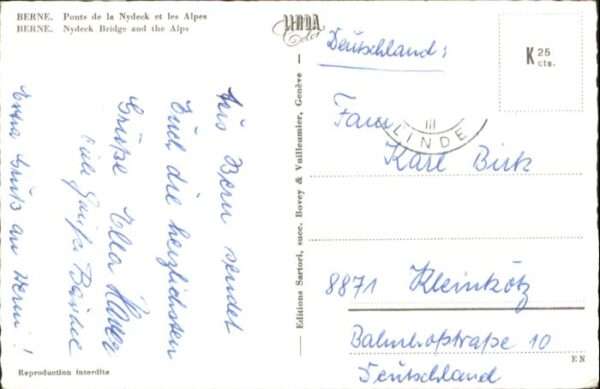 BERNE. Ponts de la Nydeck et les Alpes
BERNE. Nydeck Bridge and the Alps
Aus Bern sendet
Euch die herzlichsten
Grüße Ella
viele Grüße
Gruß an
Reproduction interdite
Editions Sartori, succ. Bovey & Vuilleumier, Genève
LINDA
Color
K 25
cts.
Deutschland:
III
LINDE
Fam
Karl Birk
8871 Kleinkötz
Bahnhofstraße 10
Deutschland
EN